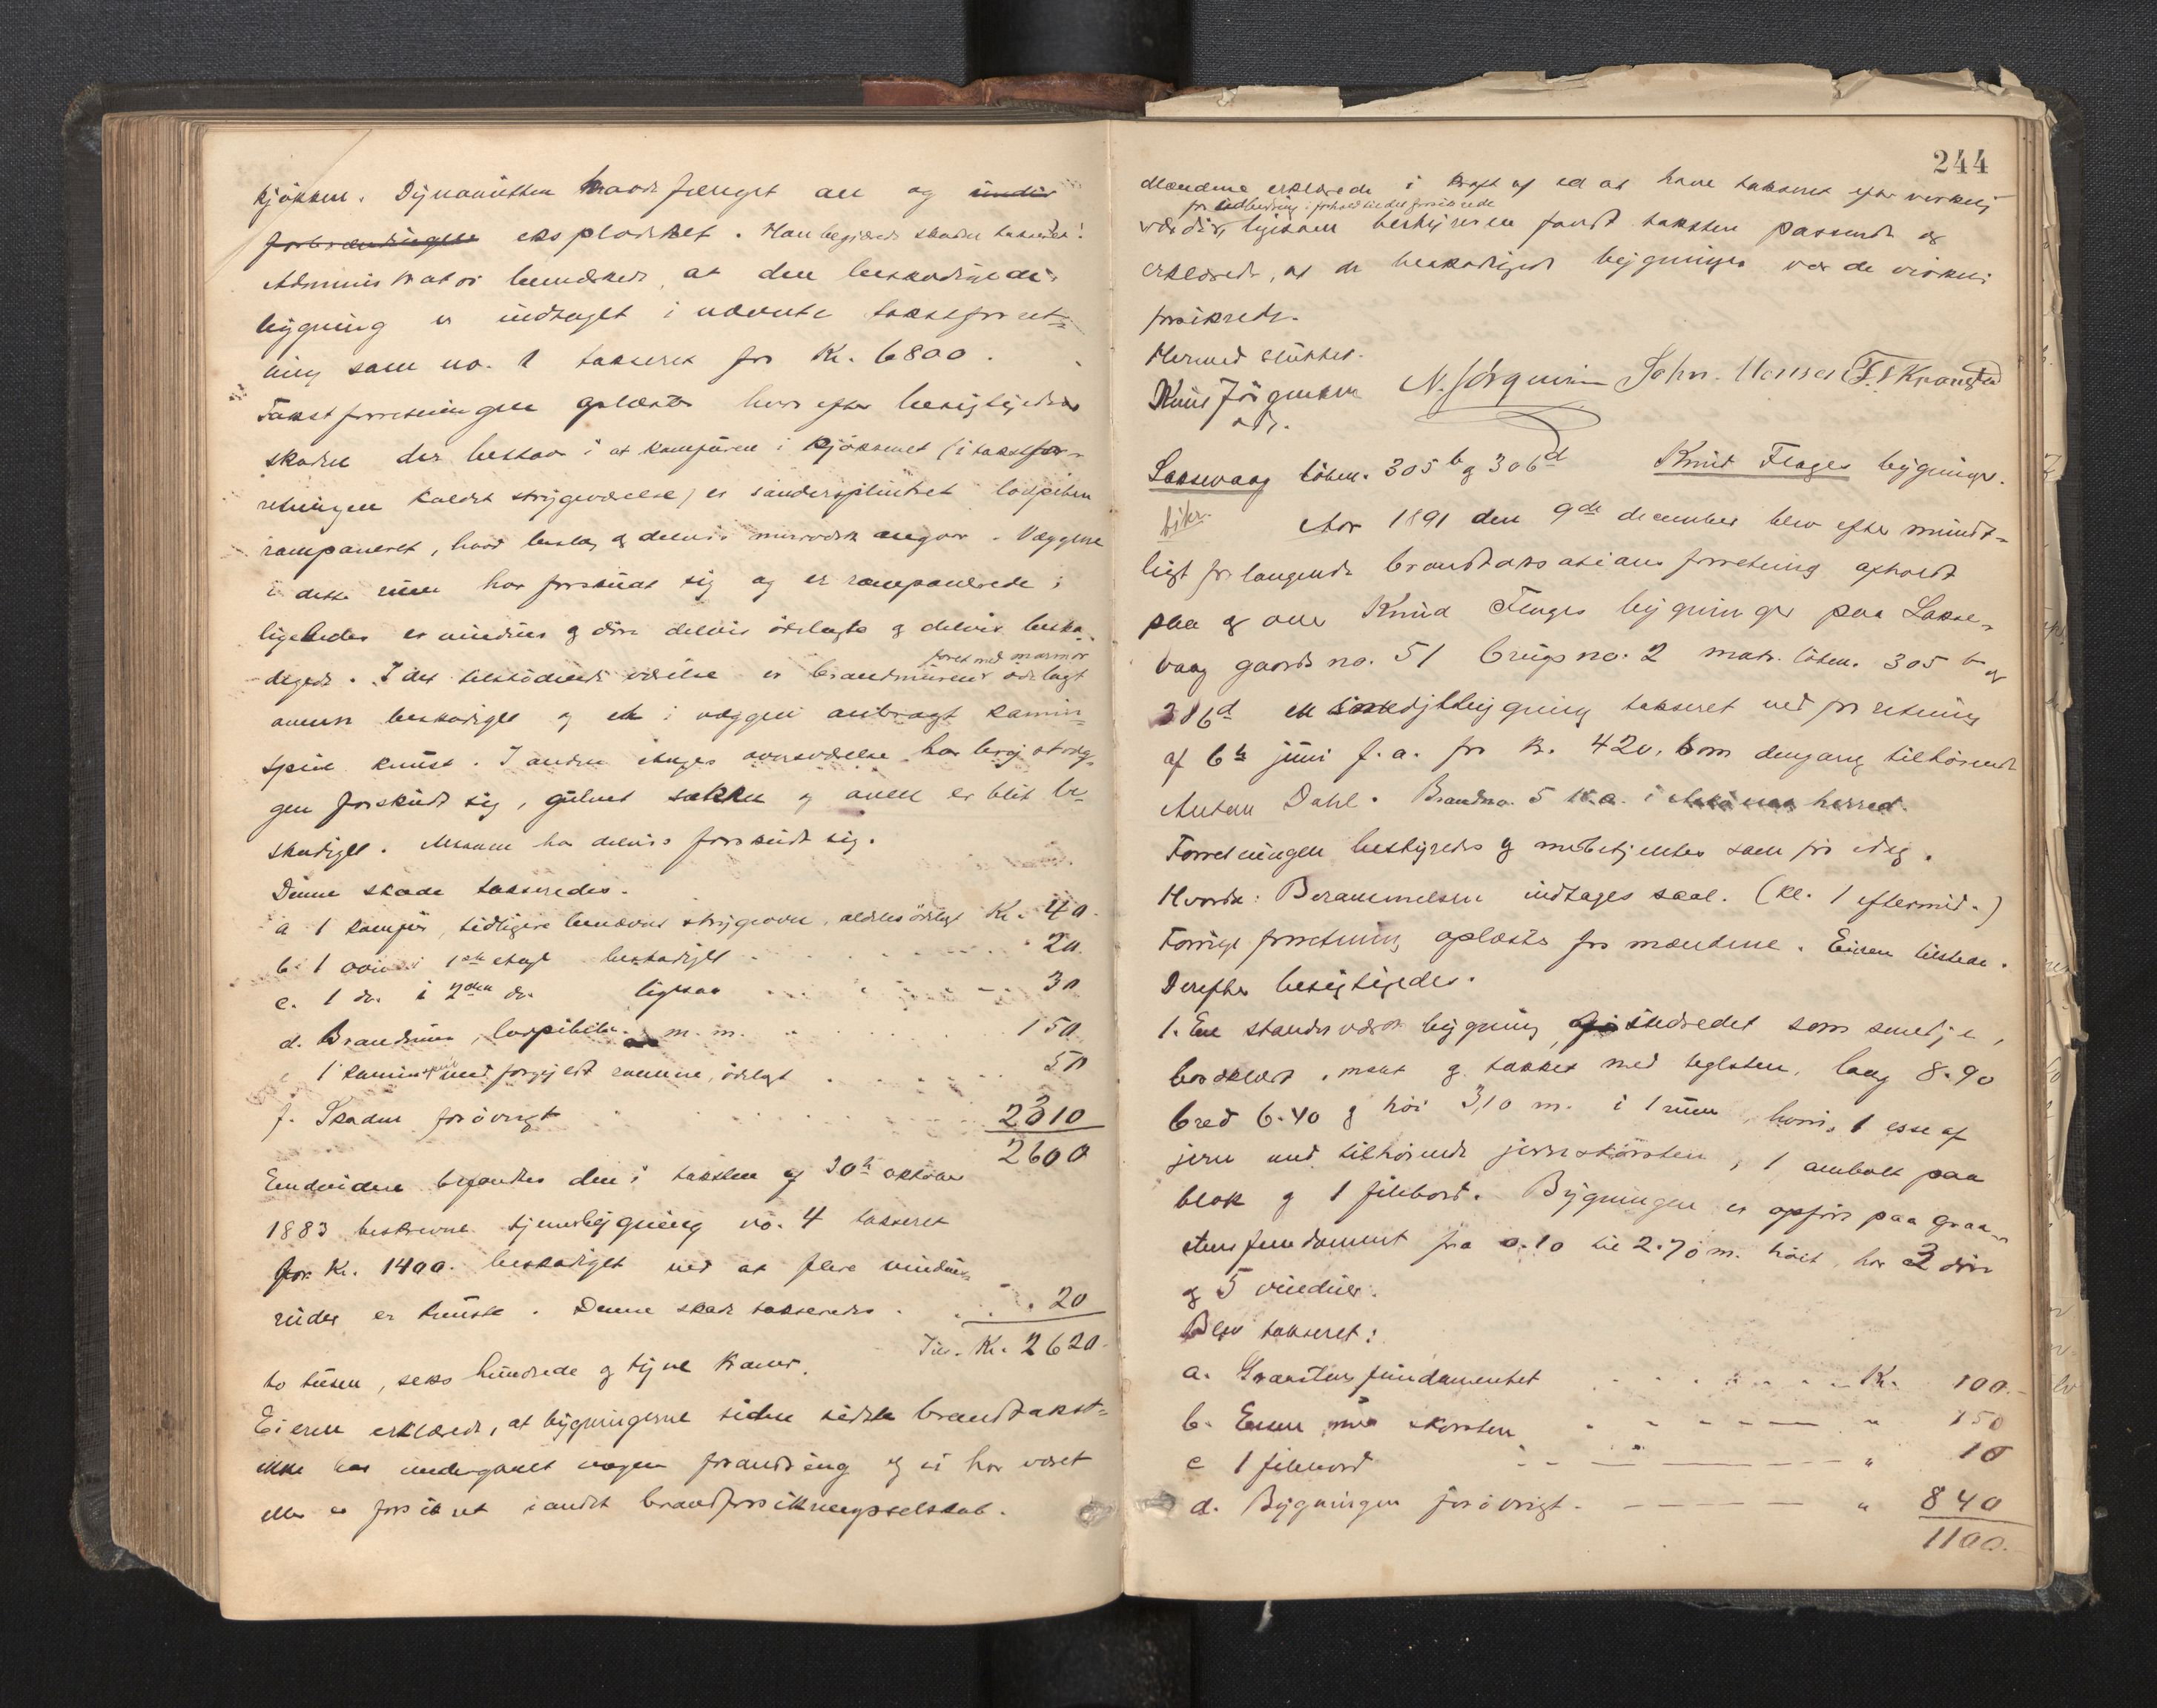 kjøkken. Dynamitten havde fænget an og under
forbrændingen eksploderet. Han begjærede skaden taxeret.
Administrator bemærkede, at den beskadigede
bygning er indtaget i nævnte takstforret-
ning som no. 1 takseret for Kr. 6800.
Takstforretningen oplæstes hvorefter besigtigedes
skaden der bestaar i at komfuren i kjøkkenet (i takstfor-
retningen kaldet strygeværelse) er søndersplintret
ramponeret, Væggene
i dette rum har forskudt sig og er ramponerede;
ligeledes er vinduer og døre delvis ødelagte og delvis beska-
digede. I det tilstødende værelse er brandmuren foret med marmor ødelagt
ovnen beskadiget og et i væggen anbragt kamin-
speil knust. I anden etages værelse har
gen forskudt sig, gulvet sokken og ovnen er blit be-
skadiget. Muren har delvis forskudt sig.
Denne skade takseredes.
a 1 komfur, tidligere benævnt strygeovn, aldeles ødelagt Kr. 40.
b. 1 ovn i 1ste etage beskadiget 20.
c. 1 do. i 2den do. ligesaa 30
d. Brandmur, m. m. 150
e 1 kaminspeil med forgyldt ramme, ødelagt 50
f. Skaden forøvrigt 2310
2600
Endvidere befandtes den i taksten af 30te oktober
1883 beskrevne bygning no. 4 takseret
for Kr. 1400. beskadiget ved at flere vindus-
ruder er knuste. Denne skade takseredes 20
Tils. Kr. 2620.
to tusen, seks hundrede og tyve kroner.
Eieren erklærede, at bygningerne siden sidste brandtakst
ikke har undergaaet nogen forandring og ei har været
eller er forsikret i andet brandforsikringsselskab.
244
Mændene erklærede i kraft af ed at have takseret efter virkelig
for udbedring i forhold til det forsikrede
værdi, ligesom bestyreren fandt taksten passende og
erklærede, at de beskadigede bygninger var de virkelig
forsikrede.
Hermed sluttet.
Knut Jörgensen N. Jörgensen John. Monsen
Laksevaag löben. 305 b og 306 d Knud Flages bygninger.
Aar 1891 den 9de december blev efter mundt-
ligt forlangende brandtaksationsforretning afholdt
paa og over Knud Flages bygninger paa Lakse-
vaag gaards no. 51 brugs no. 2 matr. löben. 305 b og
306 d en smedjebygning takseret ved forretning
af 6te juni f. a. for Kr. 420, som dengang tilhørende
Anton Dahl. Brandno. 5 herred.
Forretningen bestyredes og medbetjentes som før idag.
Hvorda: Berammelsen indtages saal. (kl. 1 eftermid.)
Forrige forretning oplæstes for mændene. Eieren tilstede.
Derefter besigtigedes.
1. En standsværks bygning, indredet som smedje,
bordklædt, malt og takket med teglsten, lang 8.90
bred 6.40 og høi 3,10 m. i 1 rum, hvori 1 esse af
jern med tilhørende jernskorsten, 1 ambolt paa
blok og 1 filebord. Bygningen er opført paa graa-
stensfundament fra 0.10 til 2.70 m. høit, har 3 døre
og 5 vinduer.
Blev takseret:
a. Graastensfundamentet Kr. 100.-
b. Essen med skorsten " 150
c 1 filebord " 10
d. Bygningen forøvrigt. " 840
1100.